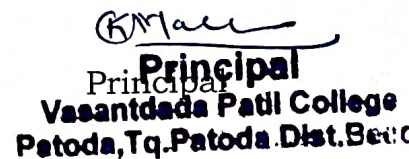 Principal
Principal
Vasantdada Patil College
Patoda, Tq. Patoda. Dist.